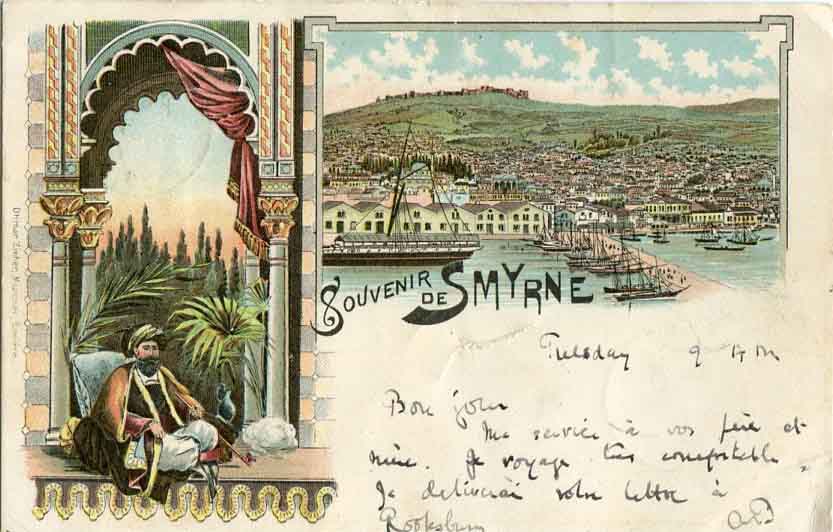 SOUVENIR DE SMYRNE
Tuesday 9 A M
Bon jour
Ma service à vos père et
mère. Je voyage très comfortable
Je deliverai votre lettre à
Rooksbury